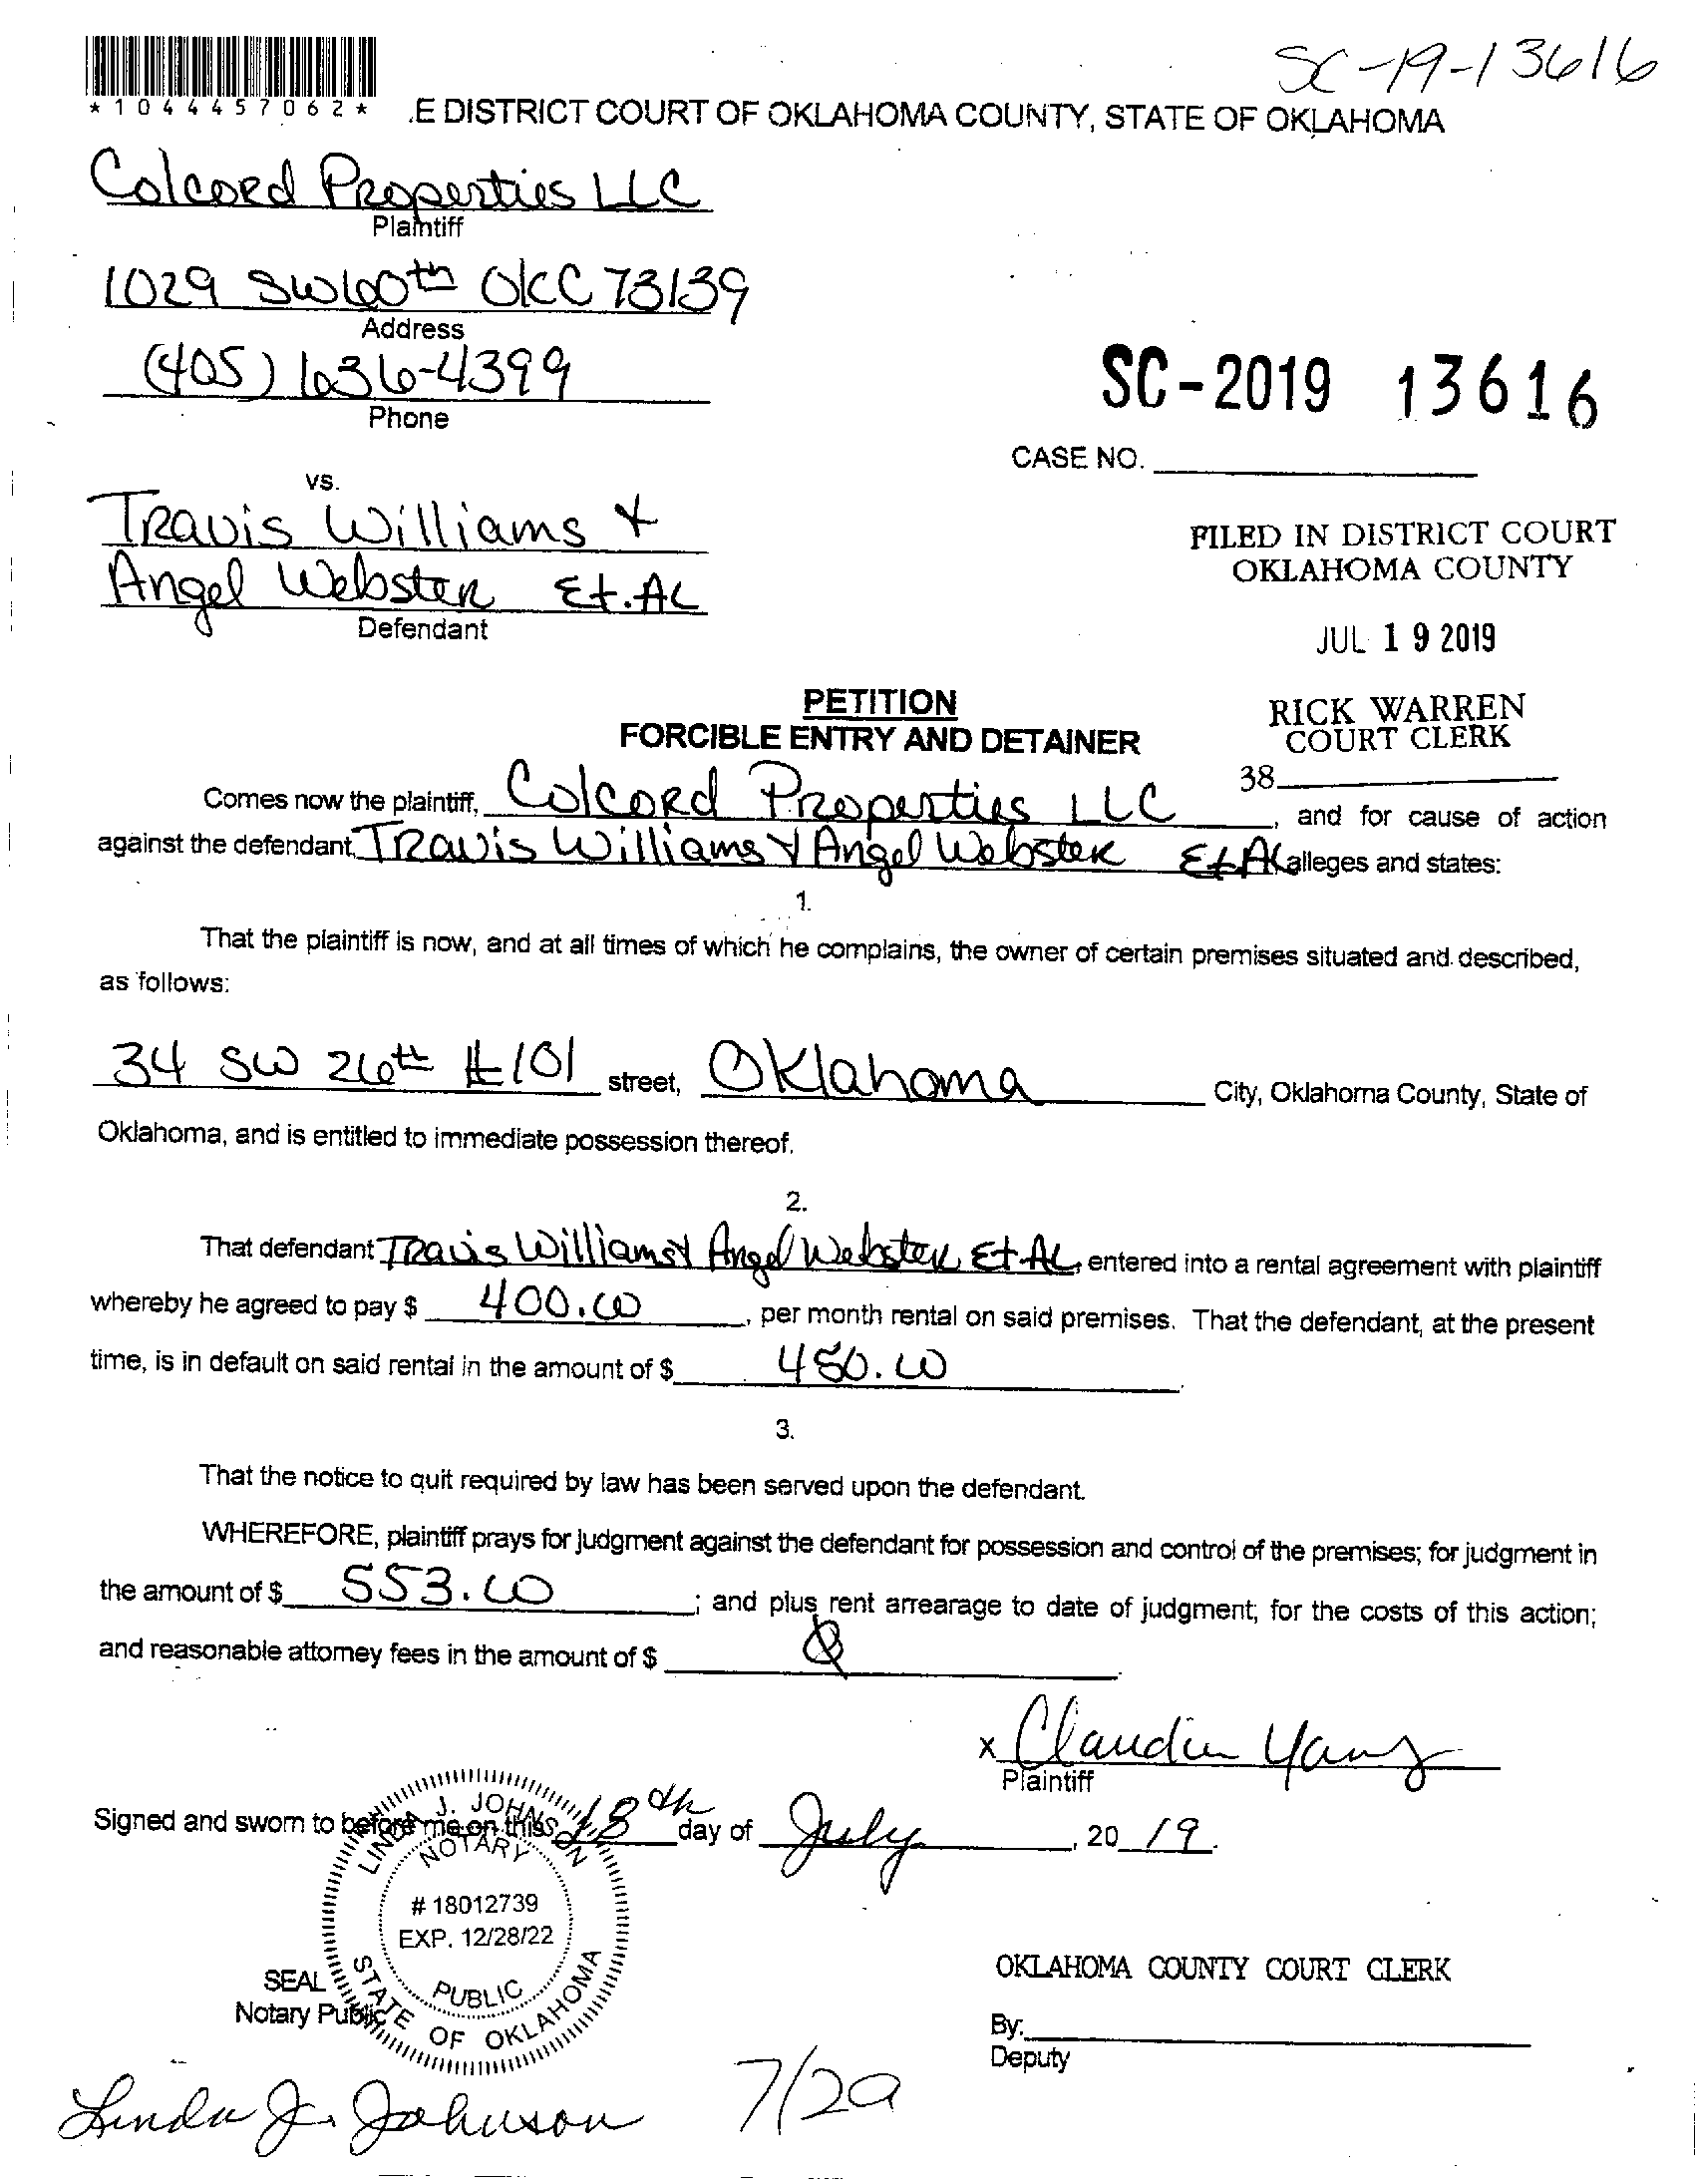 SC-19-13616
*1044457062*
.E DISTRICT COURT OF OKLAHOMA COUNTY, STATE OF OKLAHOMA
Colcord Properties LLC
Plaintiff
1029 SW 60th OKC 73139
Address
(405) 636-4399
Phone
SC-2019 13616
CASE NO.
vs.
Travis Williams &
Angel Webster Et. AL
Defendant
FILED IN DISTRICT COURT
OKLAHOMA COUNTY
JUL 19 2019
RICK WARREN
COURT CLERK
38
PETITION
FORCIBLE ENTRY AND DETAINER
Comes now the plaintiff, Colcord Properties LLC, and for cause of action
against the defendant, Travis Williams & Angel Webster Et AL alleges and states:
1.
That the plaintiff is now, and at all times of which he complains, the owner of certain premises situated and described,
as follows:
34 SW 26th #101 street, Oklahoma City, Oklahoma County, State of
Oklahoma, and is entitled to immediate possession thereof.
2.
That defendant Travis Williams & Angel Webster Et. AL, entered into a rental agreement with plaintiff
whereby he agreed to pay $ 400.00, per month rental on said premises. That the defendant, at the present
time, is in default on said rental in the amount of $ 450.00.
3.
That the notice to quit required by law has been served upon the defendant.
WHEREFORE, plaintiff prays for judgment against the defendant for possession and control of the premises; for judgment in
the amount of $ 553.00; and plus rent arrearage to date of judgment; for the costs of this action;
and reasonable attorney fees in the amount of $ 0.
x Claudia Yanz
Plaintiff
Signed and sworn to before me on this 18th day of July, 2019.
LINDA J. JOHNSON
NOTARY
# 18012739
EXP. 12/28/22
PUBLIC
STATE OF OKLAHOMA
SEAL
Notary Public
OKLAHOMA COUNTY COURT CLERK
By:
Deputy
Linda J. Johnson
7/29